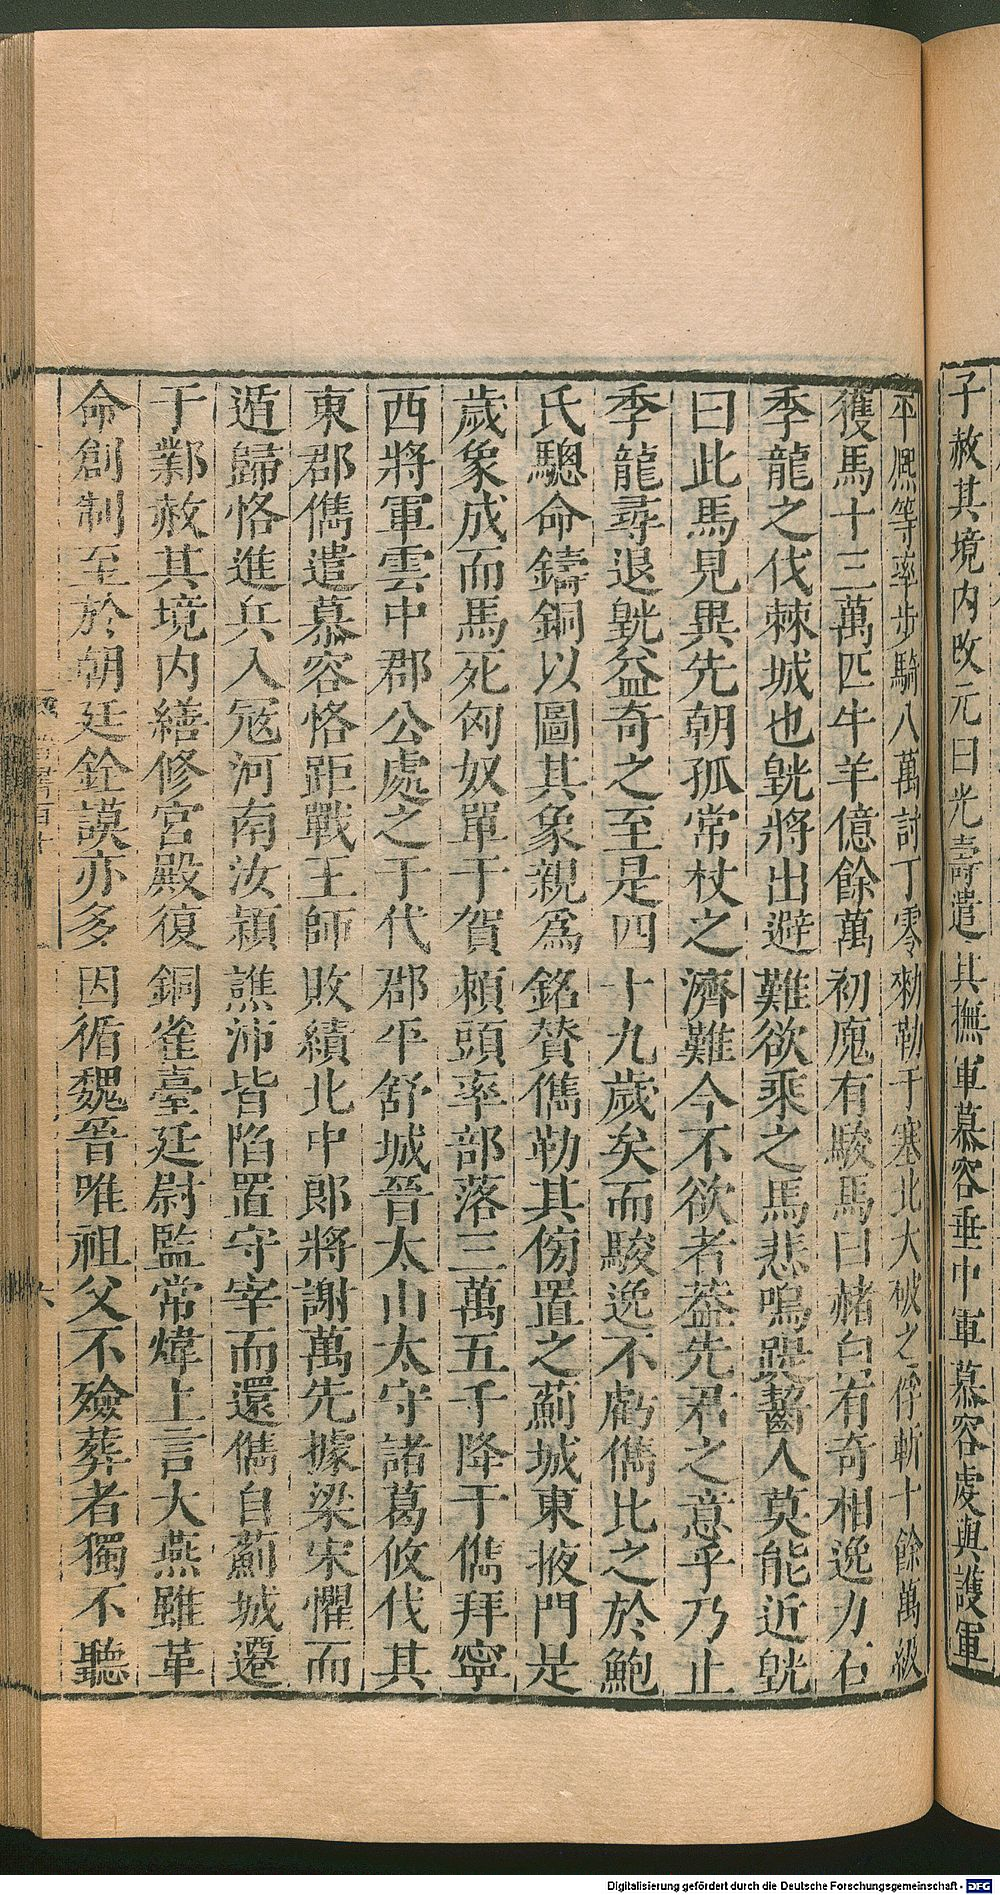 子赦其境內改元曰光壽遣其撫軍慕容垂中軍慕容虔與護軍
平熈等率步騎八萬討丁零勑勒于塞北大破之俘斬十餘萬級
獲馬十三萬匹牛羊億餘萬初廆有駿馬曰赭白有奇相逸力石
季龍之伐棘城也皝將出避難欲乘之馬悲鳴踶齧人莫能近皝
曰此馬見異先朝孤常杖之濟難今不欲者葢先君之意乎乃止
季龍尋退皝益奇之至是四十九歲矣而駿逸不虧儁比之於鮑
氏驄命鑄銅以圖其象親爲銘贊儁勒其傍置之薊城東掖門是
歲象成而馬死匈奴單于賀頼頭率部落三萬五千降于儁拜寧
西將軍雲中郡公處之于代郡平舒城晉太山太守諸葛攸伐其
東郡儁遣慕容恪距戰王師敗績北中郎將謝萬先據梁宋懼而
遁歸恪進兵入冦河南汝潁譙沛皆陷置守宰而還儁自薊城遷
于鄴赦其境內繕修宮殿復銅雀臺廷尉監常煒上言大燕雖革
命創制至於朝廷銓謨亦多因循魏晉唯祖父不殮葬者獨不聽
Digitalisierung gefördert durch die Deutsche Forschungsgemeinschaft - DFG